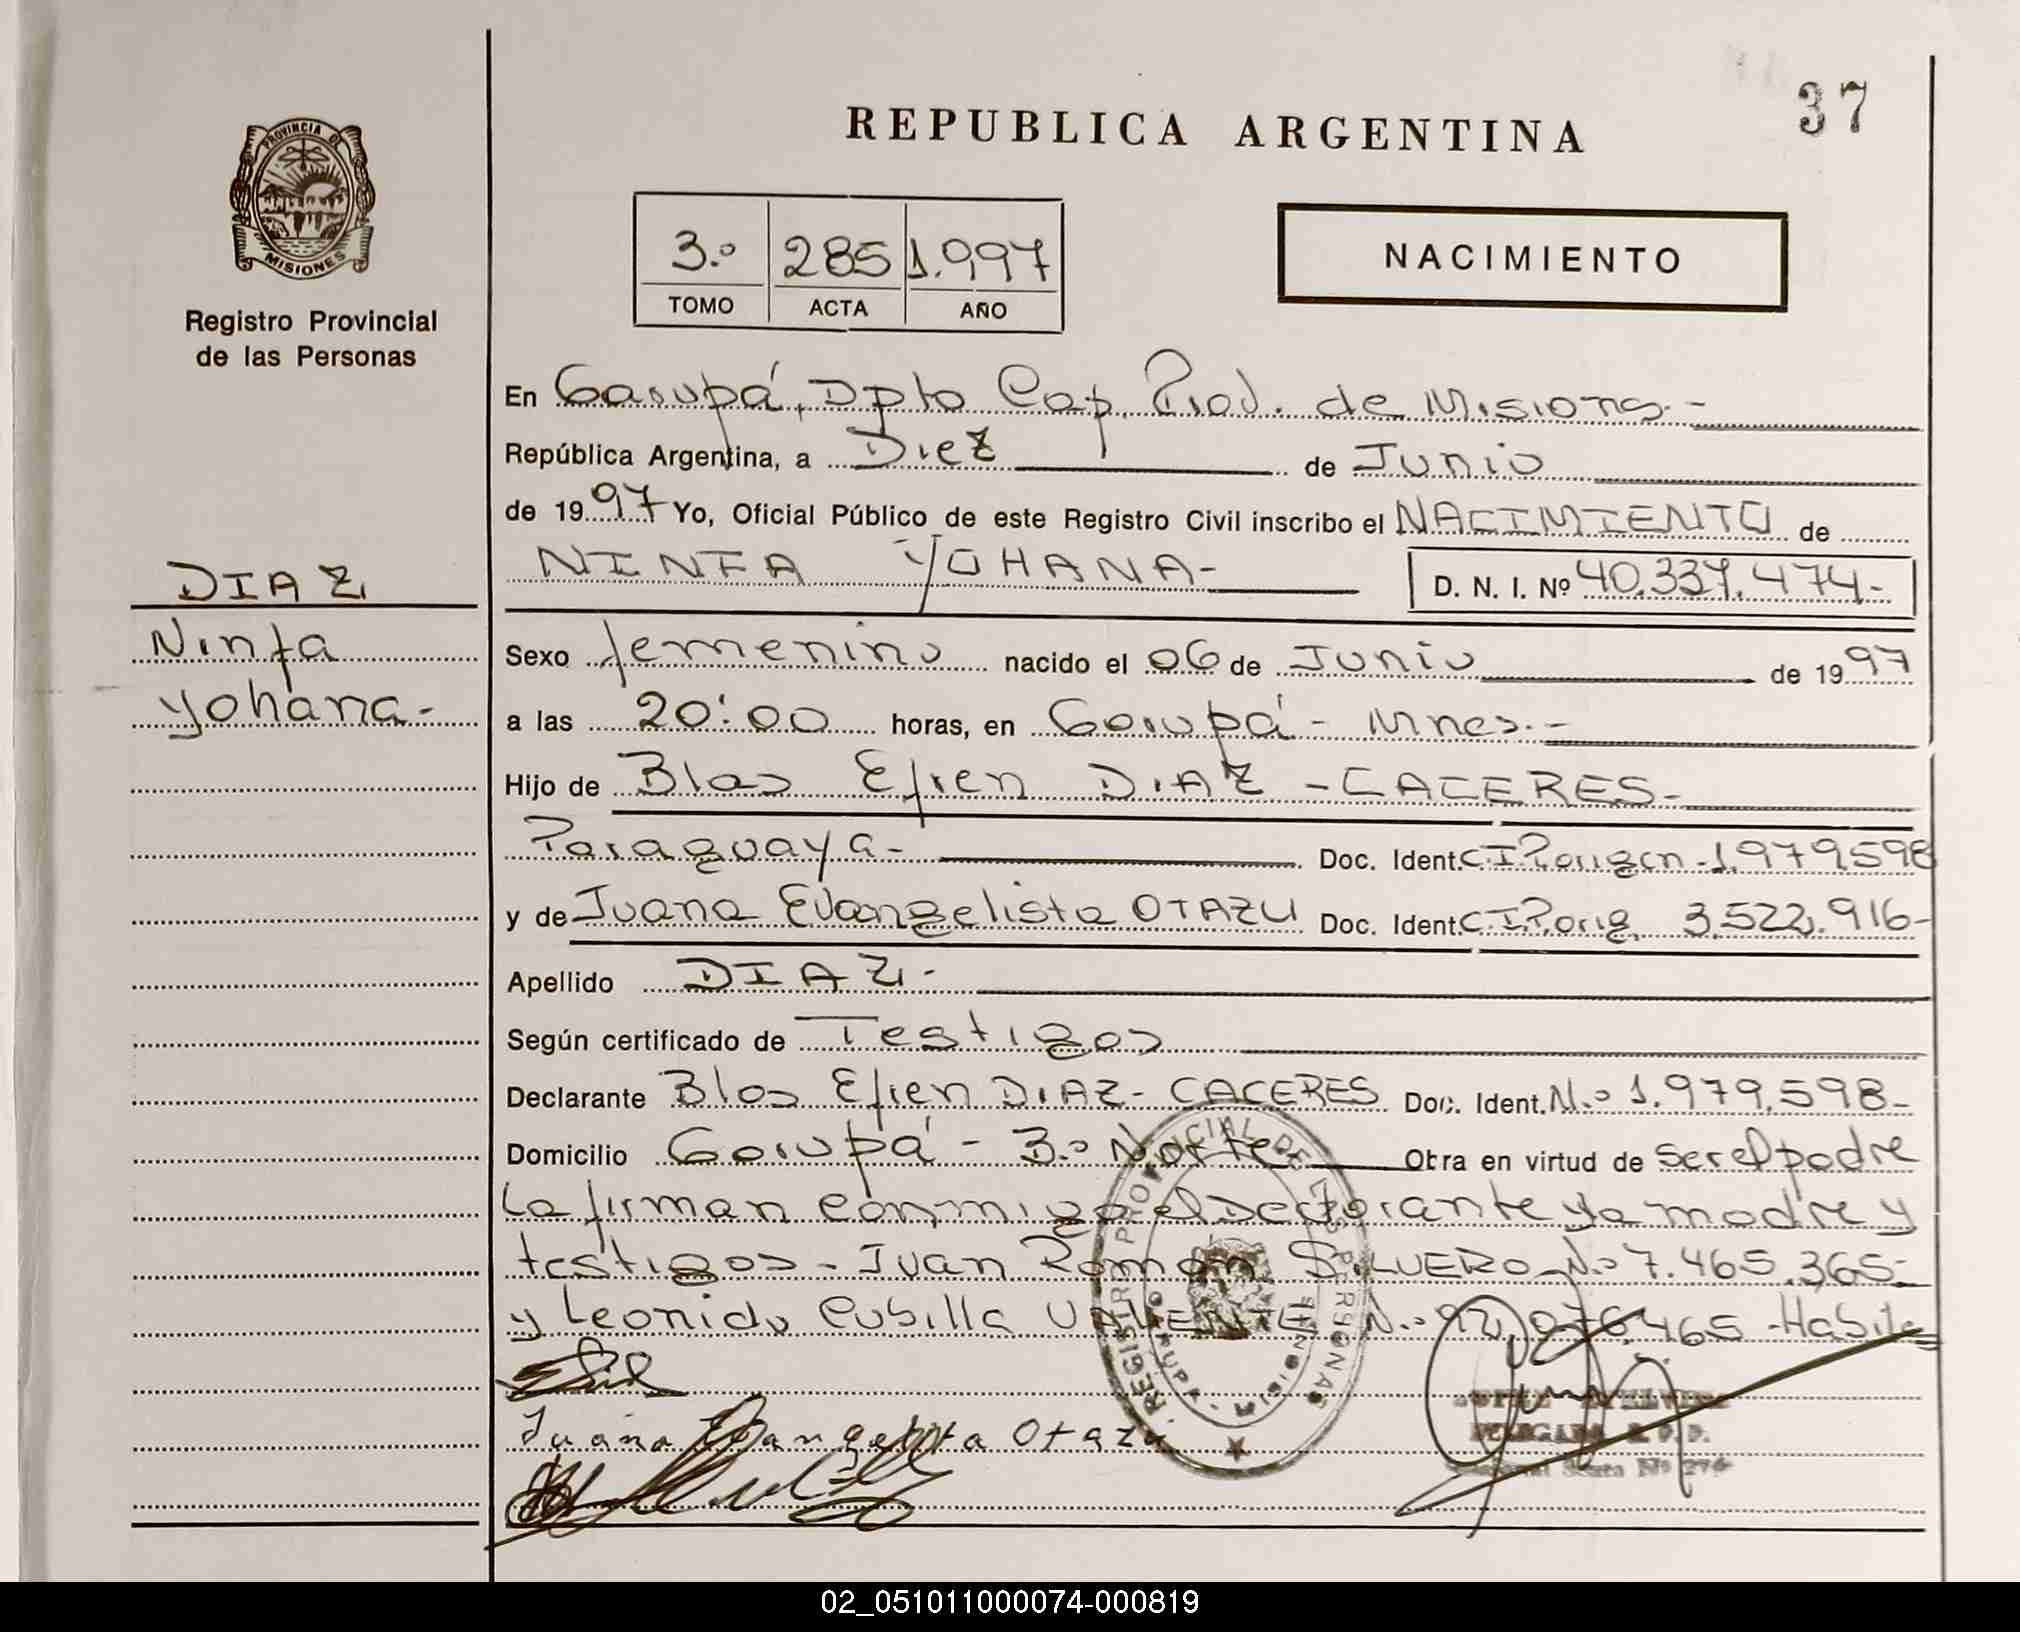 37
REPUBLICA ARGENTINA
PROVINCIA DE
MISIONES
Registro Provincial
de las Personas
3.º 285 1.997
TOMO ACTA AÑO
NACIMIENTO
En Garupá, Dpto Cap. Prov. de Misiones.-
República Argentina, a Diez de Junio
de 1997 Yo, Oficial Público de este Registro Civil inscribo el NACIMIENTO de
NINFA YOHANA- D. N. I. Nº 40.337.474-
DIAZ
Ninfa
Yohana-
Sexo femenino nacido el 06 de Junio de 1997
a las 20:00 horas, en Garupá - Mnes.-
Hijo de Blas Efren DIAZ - CACERES-
Paraguaya- Doc. Ident. C.I.P. origen - 1.979.598
y de Juana Evangelista OTAZU Doc. Ident. C.I.P. orig. 3.522.916-
Apellido DIAZ-
Según certificado de Testigos
Declarante Blas Efren DIAZ- CACERES Doc. Ident. N.º 1.979.598-
Domicilio Garupá - B.º Norte Obra en virtud de ser el padre
La firman conmigo el Declarante y la madre y
testigos - Juan Roman N.º 7.465.365-
y Leonida Cubilla N.º 92.076.465 - Habiles
Juana Evangelista Otazu
REGISTRO PROVINCIAL DE LAS PERSONAS
Misiones
02_051011000074-000819